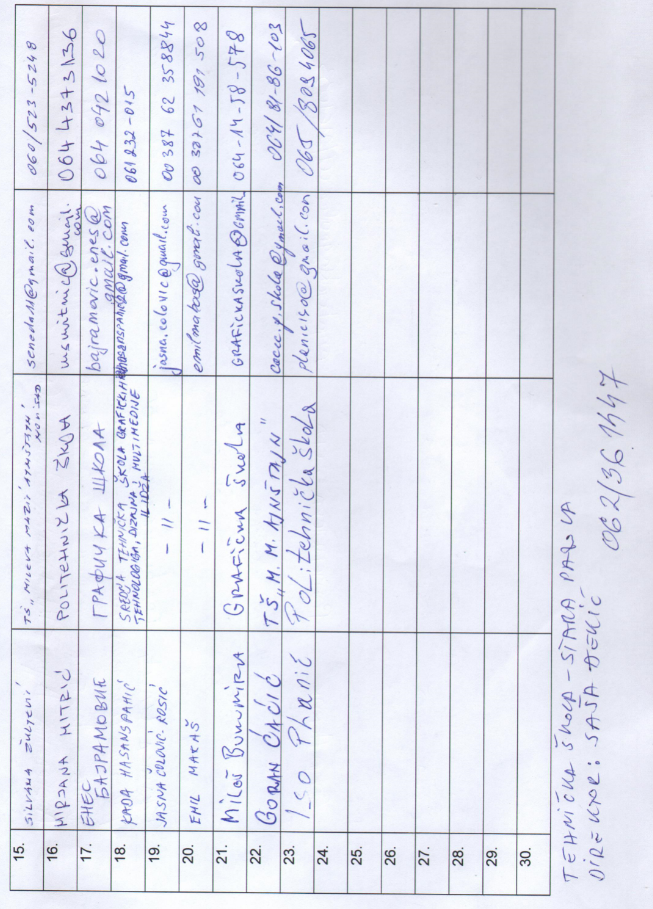 15. SILVANA ŽULJEVIĆ TŠ „MILEVA MARIĆ AJNŠTAJN" NOVI SAD @gmail.com 060/523-5248
16. МИРЈАНА МИТРИЋ POLITEHNIČKA ŠKOLA @gmail.com 064 4373136
17. ЕНЕС БАЈРАМОВИЋ ГРАФИЧКА ШКОЛА bajramovic.enes@gmail.com 064 042 1020
18. KADA HASANSPAHIĆ SREDNJA TEHNIČKA ŠKOLA GRAFIČKIH TEHNOLOGIJA, DIZAJNA I MULTIMEDIJE ILIDŽA @gmail.com 061 232-015
19. JASNA ČOLOVIĆ-ROSIĆ - 11 - jasna.colovic@gmail.com 00 387 62 358844
20. EMIL MATAŠ - 11 - @gmail.com 00 387 61 191 508
21. Miloš GRAFIČKA ŠKOLA GRAFICKASKOLA@GMAIL 064-14-58-578
22. GORAN ĆAĆIĆ TŠ „M. M. AJNŠTAJN" @gmail.com 064/81-86-103
23. ISO PLANIĆ POLitehnička škola planiciso@gmail.com 065/8094065
24.
25.
26.
27.
28.
29.
30.
TEHNIČKA ŠKOLA - STARA PAZOVA
DIREKTOR: SAŠA 062/361447